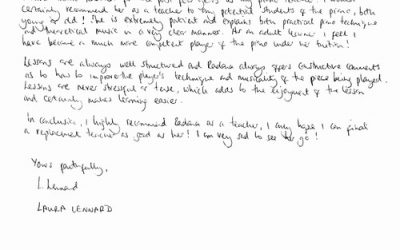 certainly recommend her as a teacher to any potential students of the piano, both
young or old! She is extremely patient and explains both practical piano technique
and theoretical music in a very clear manner. As an adult learner I feel I
have become a much more competent player of the piano under her tuition!
Lessons are always well structured and Radana always offers constructive comments
as to how to improve the player's technique and musicality of the piece being played.
Lessons are never stressful or tense, which adds to the enjoyment of the lesson
and certainly makes learning easier.
In conclusion, I highly recommend Radana as a teacher, I only hope I can find
a replacement teacher as good as her! I am very sad to see her go!
Yours faithfully,
L Lennard
LAURA LENNARD